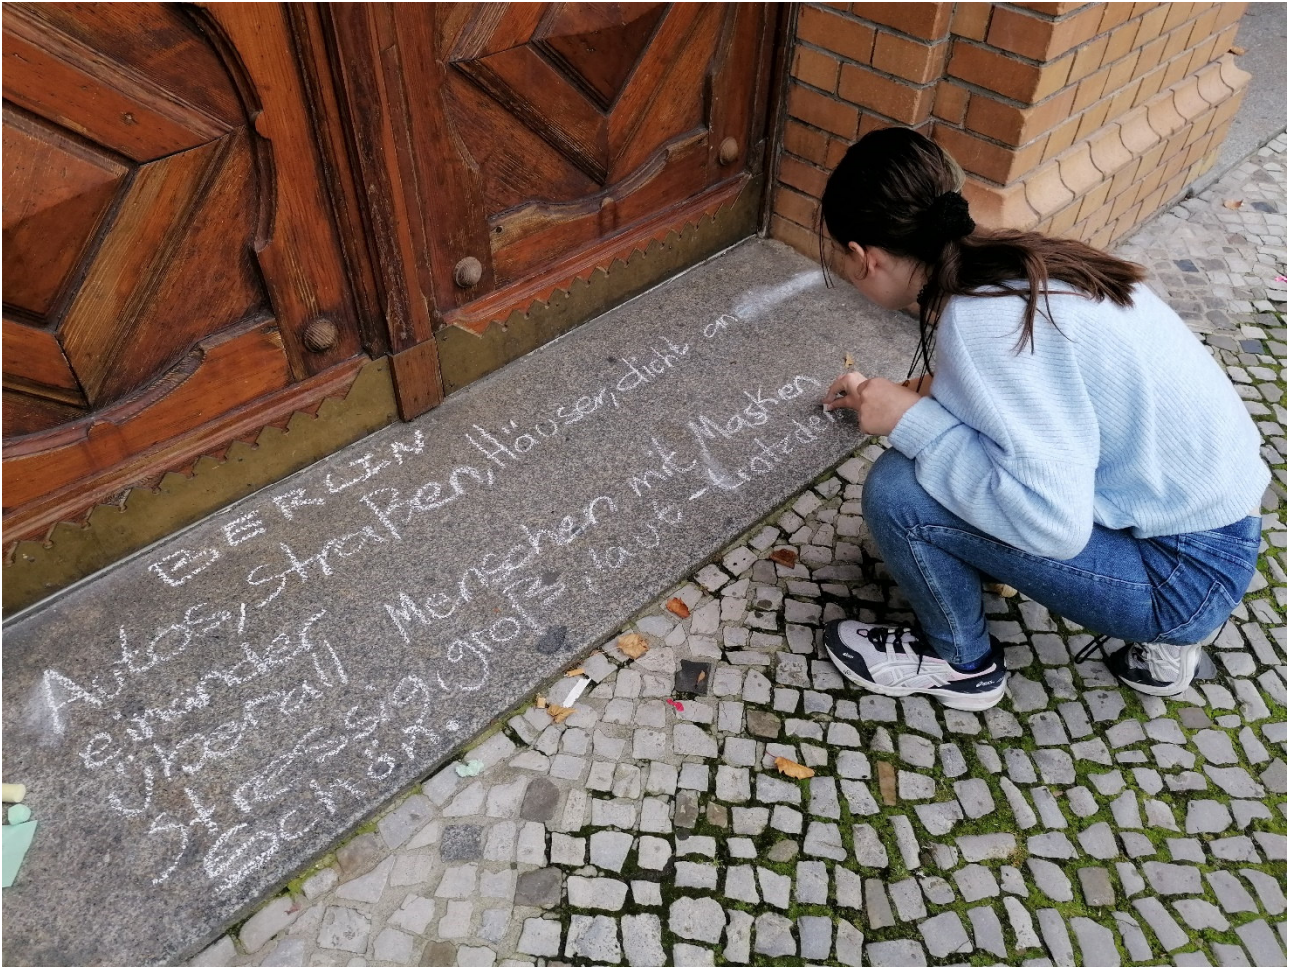 BERLIN
Autos, Straßen, Häuser, dicht an
einander
überall Menschen mit Masken
stressig, groß, laut - trotzdem
Schön.